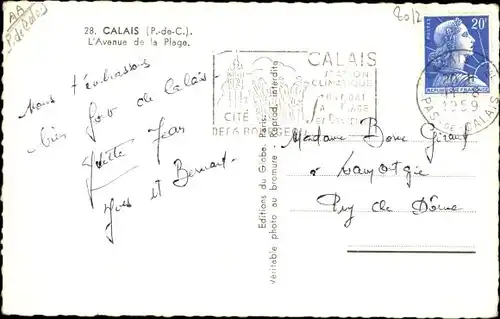 AA
P. de Calais
28. CALAIS (P.-de-C.).
L'Avenue de la Plage.
8012
POSTES
20F
REPUBLIQUE FRANCAISE
CALAIS
STATION
CLIMATIQUE
CITÉ
DES 6 BOURGEOIS
1959
PAS-DE-CALAIS
Nous t'embrassons
bien fort de Calais
Yvette Jean
Yves et Bernard
Editions du Globe, Paris. Reprod. interdite
Véritable photo au bromure
Madame
à
Puy de Dôme